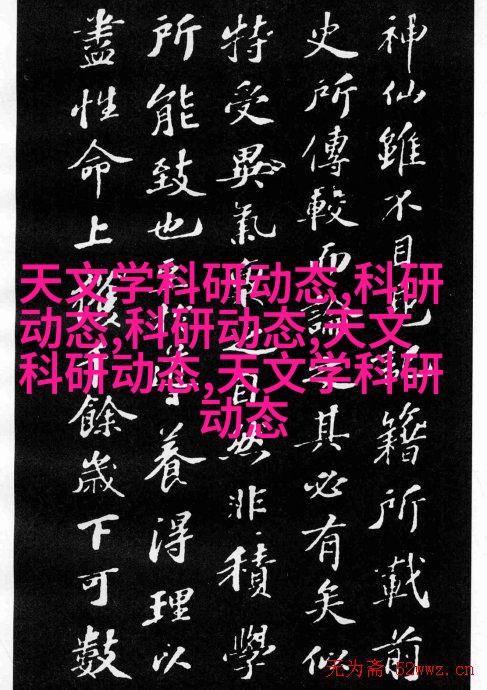 神仙雖不目見記籍所載前
史所傳較而論之其必有矣似
特受異氣稟之自然非積學
所能致也養得理以
盡性命上獲千餘歲下可數
天文学科研动态,科研
动态,科研动态,天文
科研动态,天文学科研
动态
无为斋·52wwz.cn